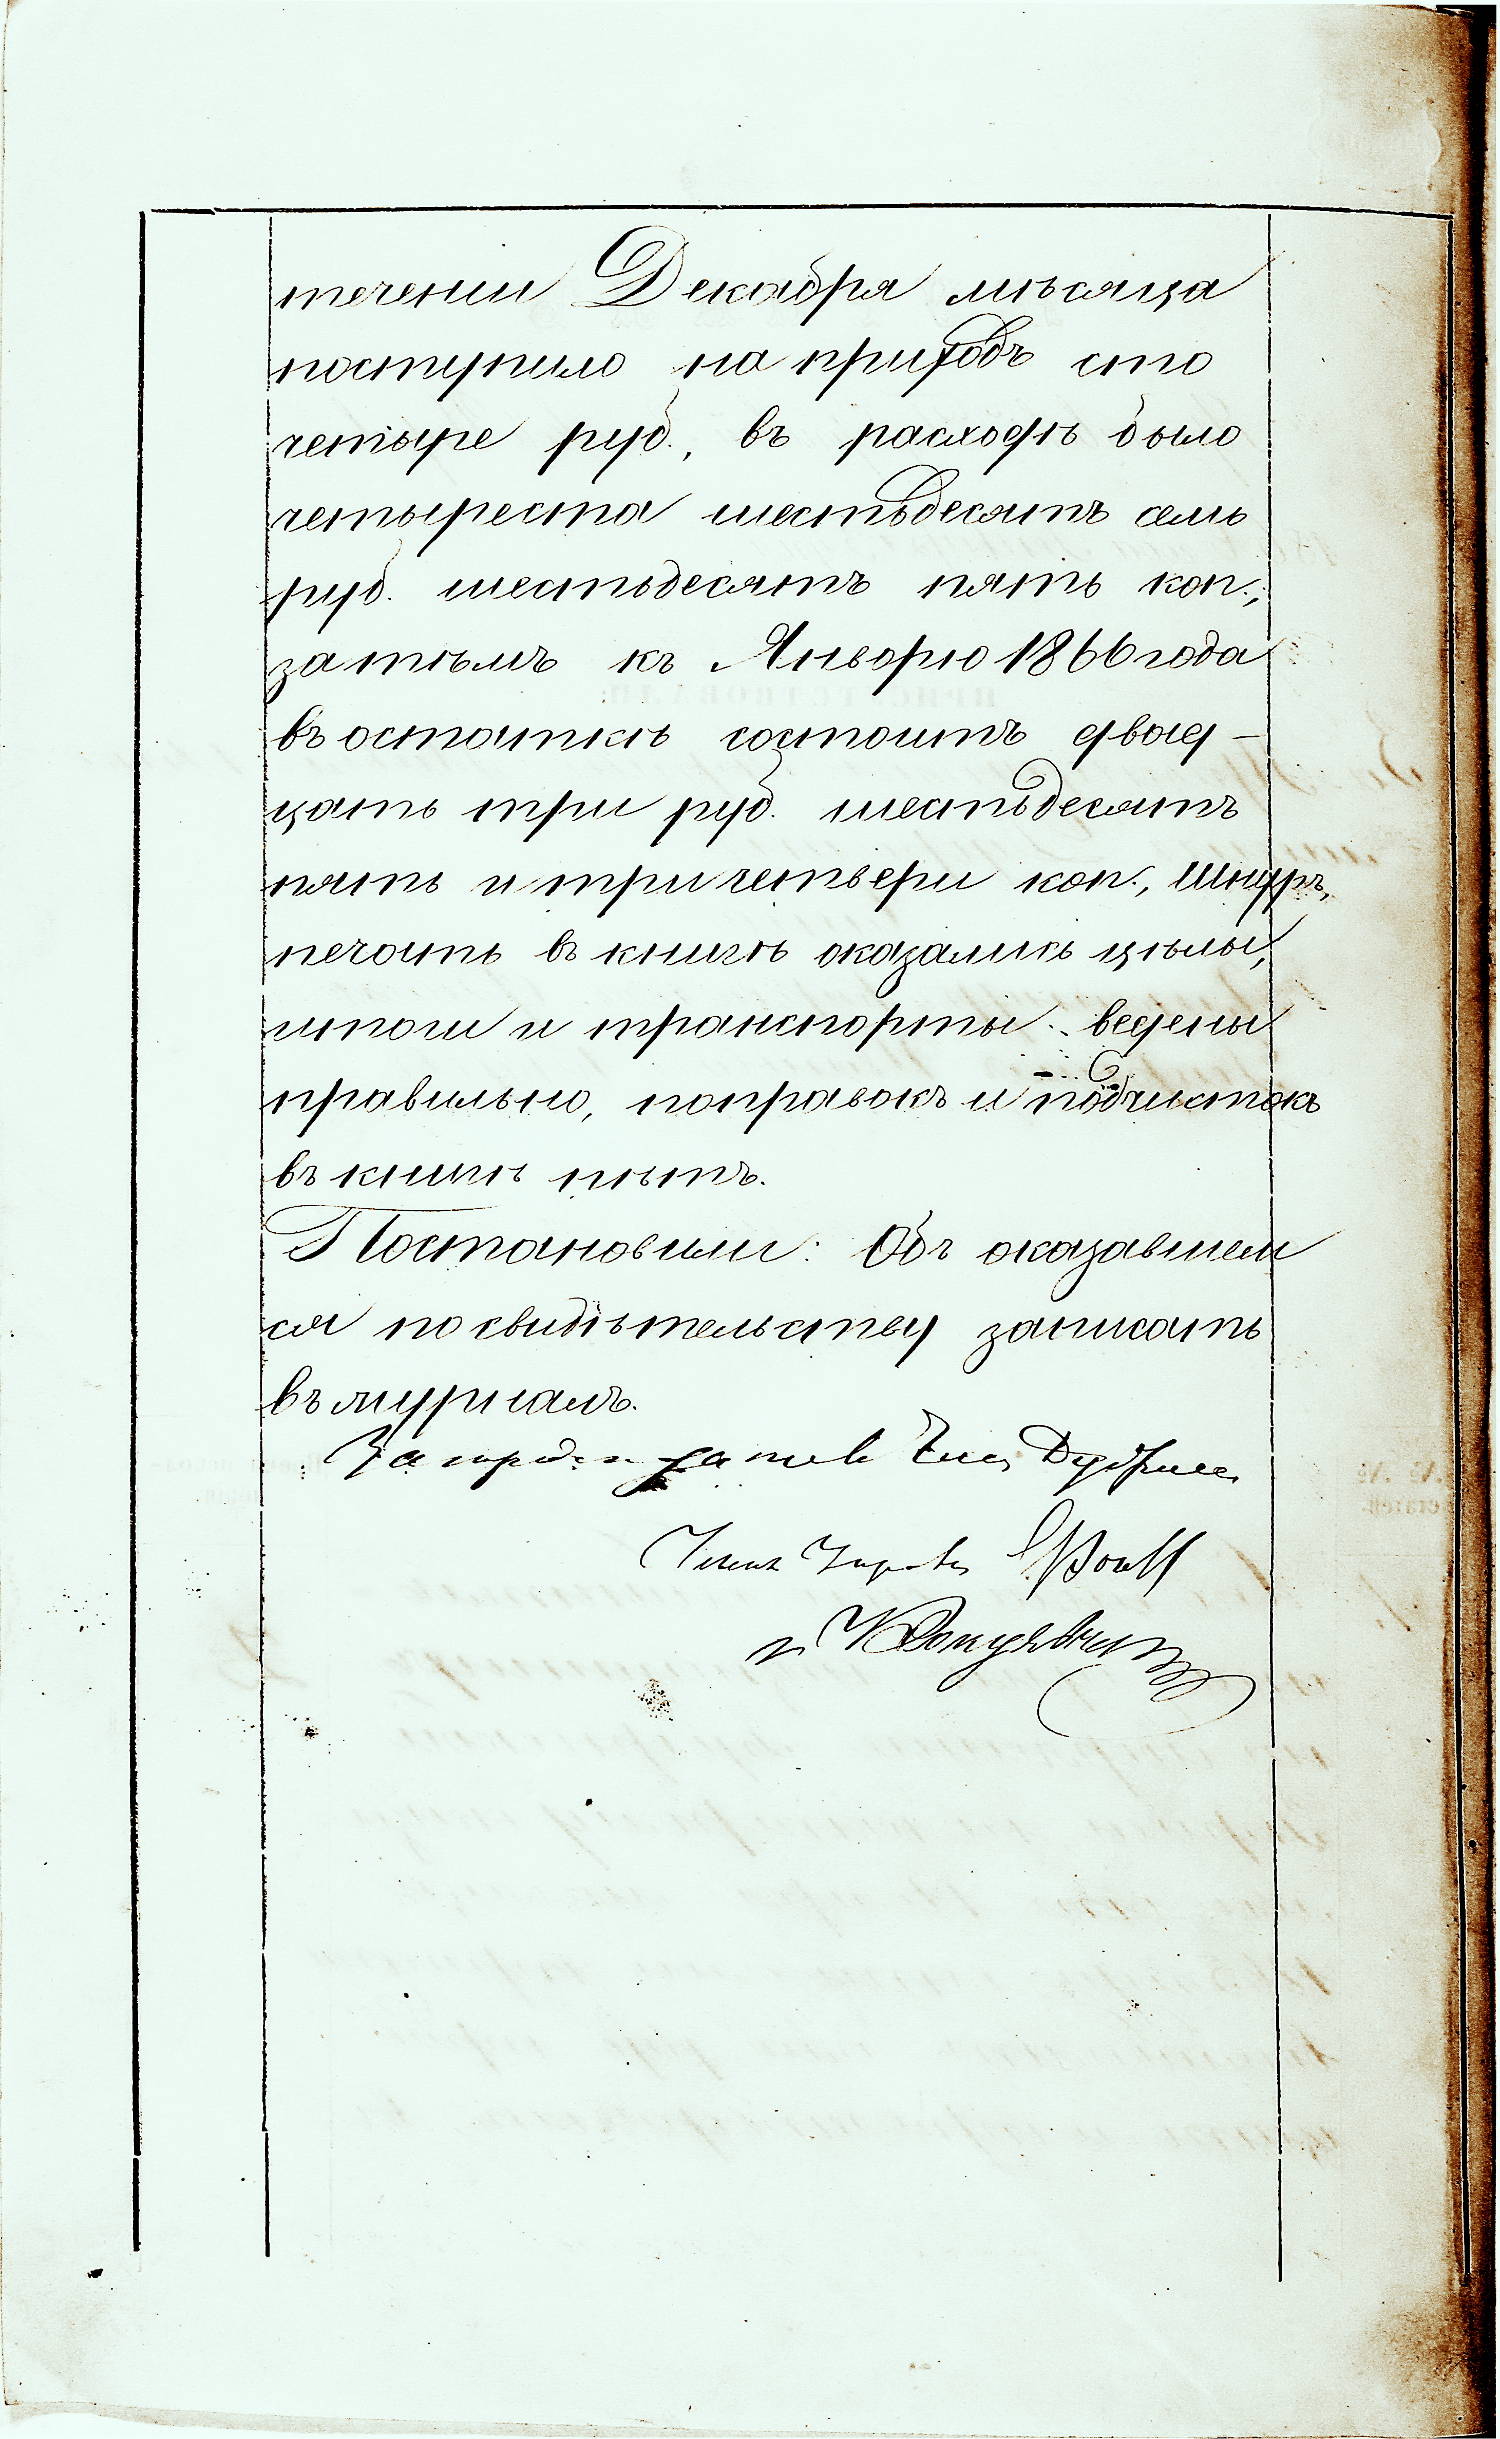 теченіи Декабря мѣсяца
поступило на приходъ сто
четыре руб., въ расходѣ было
четыреста шестьдесятъ семь
руб. шестьдесятъ пять коп.,
затѣмъ къ Январю 1866 года
въ остаткѣ состоитъ двад-
цать три руб. шестьдесятъ
пять и три четверти коп., Шнуръ,
печать въ книгѣ оказались цѣлы,
итоги и транспорты ведены
правильно, поправокъ и подчистокъ
въ книгѣ нѣтъ.
Постановили: Объ оказавшем
ся по свидѣтельству записать
въ журналъ.
За предсѣдателя Член
Членъ Управы
и